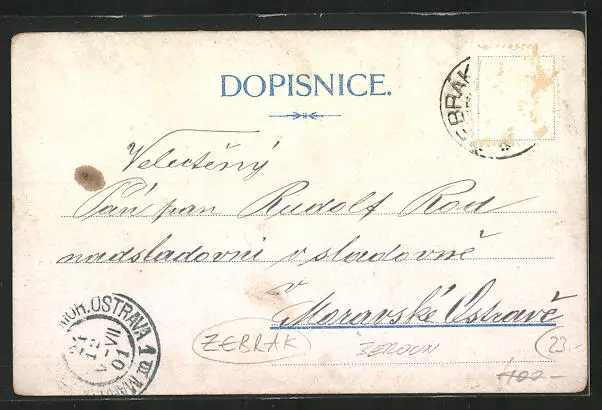 DOPISNICE.
EBRÁK
Velectěný
Pán pan Rudolf Rod
nadsladovní v sladovně
v
Moravské Ostravě
MOR. OSTRAVA 1
24
12
VII
01
ZEBRAK
BEROUN
23-
100-